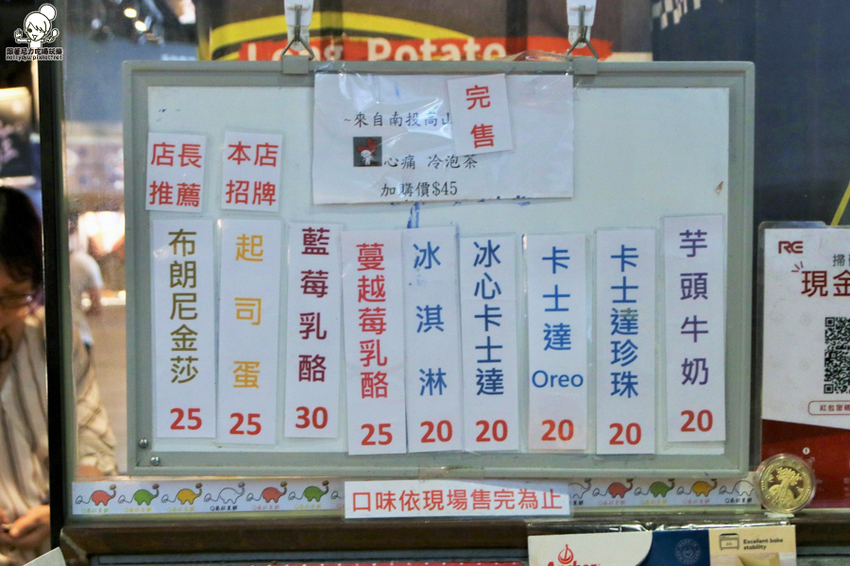 跟著尼力吃喝玩樂
Long Potato
完售
~來自南投高山
心痛 冷泡茶
加購價$45
店長推薦
本店招牌
布朗尼金莎 25
起司蛋 25
藍莓乳酪 30
蔓越莓乳酪 25
冰淇淋 20
冰心卡士達 20
卡士達Oreo 20
卡士達珍珠 20
芋頭牛奶 20
口味依現場售完為止
掃
現金
Excellent bake
stability